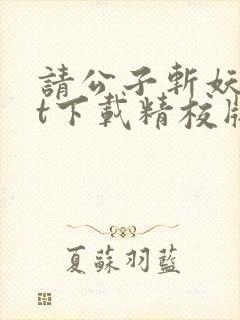 請公子斬妖
t下載精校版
夏蘇羽藍